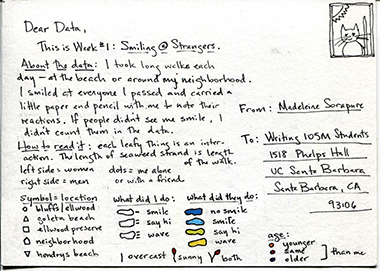 Dear Data,
This is Week #1: Smiling @ Strangers.
About the data: I took long walks each
day — at the beach or around my neighborhood.
I smiled at everyone I passed and carried a
little paper and pencil with me to note their
reactions. If people didn't see me smile, I
didn't count them in the data.
How to read it: each leafy thing is an inter-
action. The length of seaweed strand is length
of the walk.
left side = women dots = me alone
right side = men or with a friend.
From: Madeleine Sorapure
To: Writing 105M Students
1518 Phelps Hall
UC Santa Barbara
Santa Barbara, CA
93106
Symbol = location
bluffs/ellwood
goleta beach
ellwood preserve
neighborhood
hendrys beach
What did I do:
= smile
= say hi
= wave
What did they do:
no smile
smile
say hi
wave
| overcast sunny both
age:
younger
same
older
than me